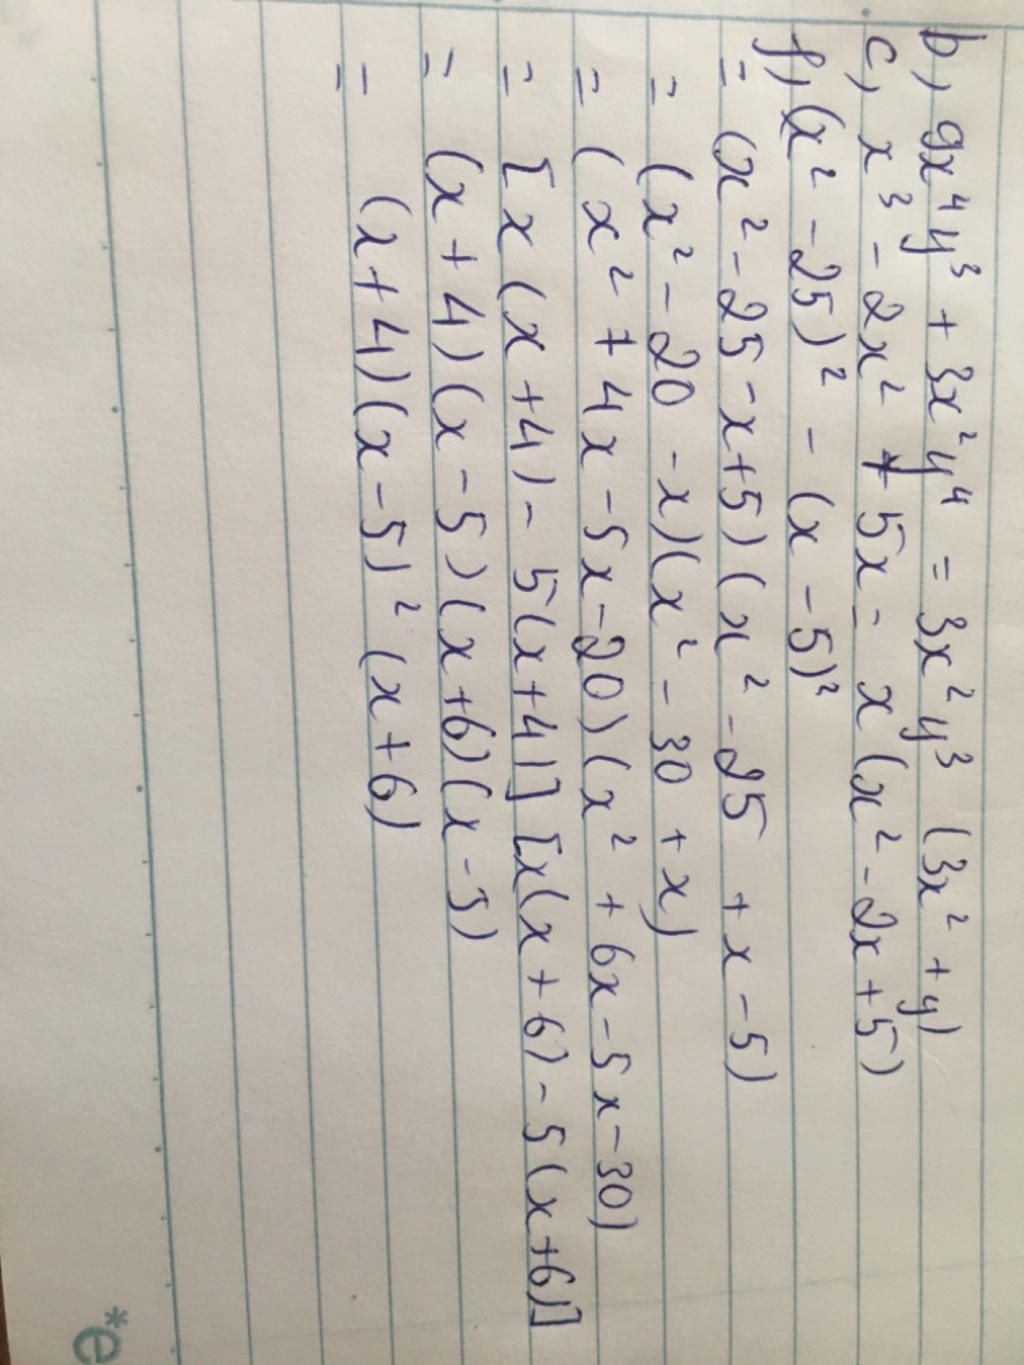 b, 9x⁴y³ + 3x²y⁴ = 3x²y³ (3x² + y)
c, x³ - 2x² + 5x = x (x² - 2x + 5)
f, (x² - 25)² - (x - 5)²
= (x² - 25 - x + 5) (x² - 25 + x - 5)
= (x² - 20 - x) (x² - 30 + x)
= (x² + 4x - 5x - 20) (x² + 6x - 5x - 30)
= [x (x + 4) - 5 (x + 4)] [x (x + 6) - 5 (x + 6)]
= (x + 4) (x - 5) (x + 6) (x - 5)
= (x + 4) (x - 5)² (x + 6)
*e